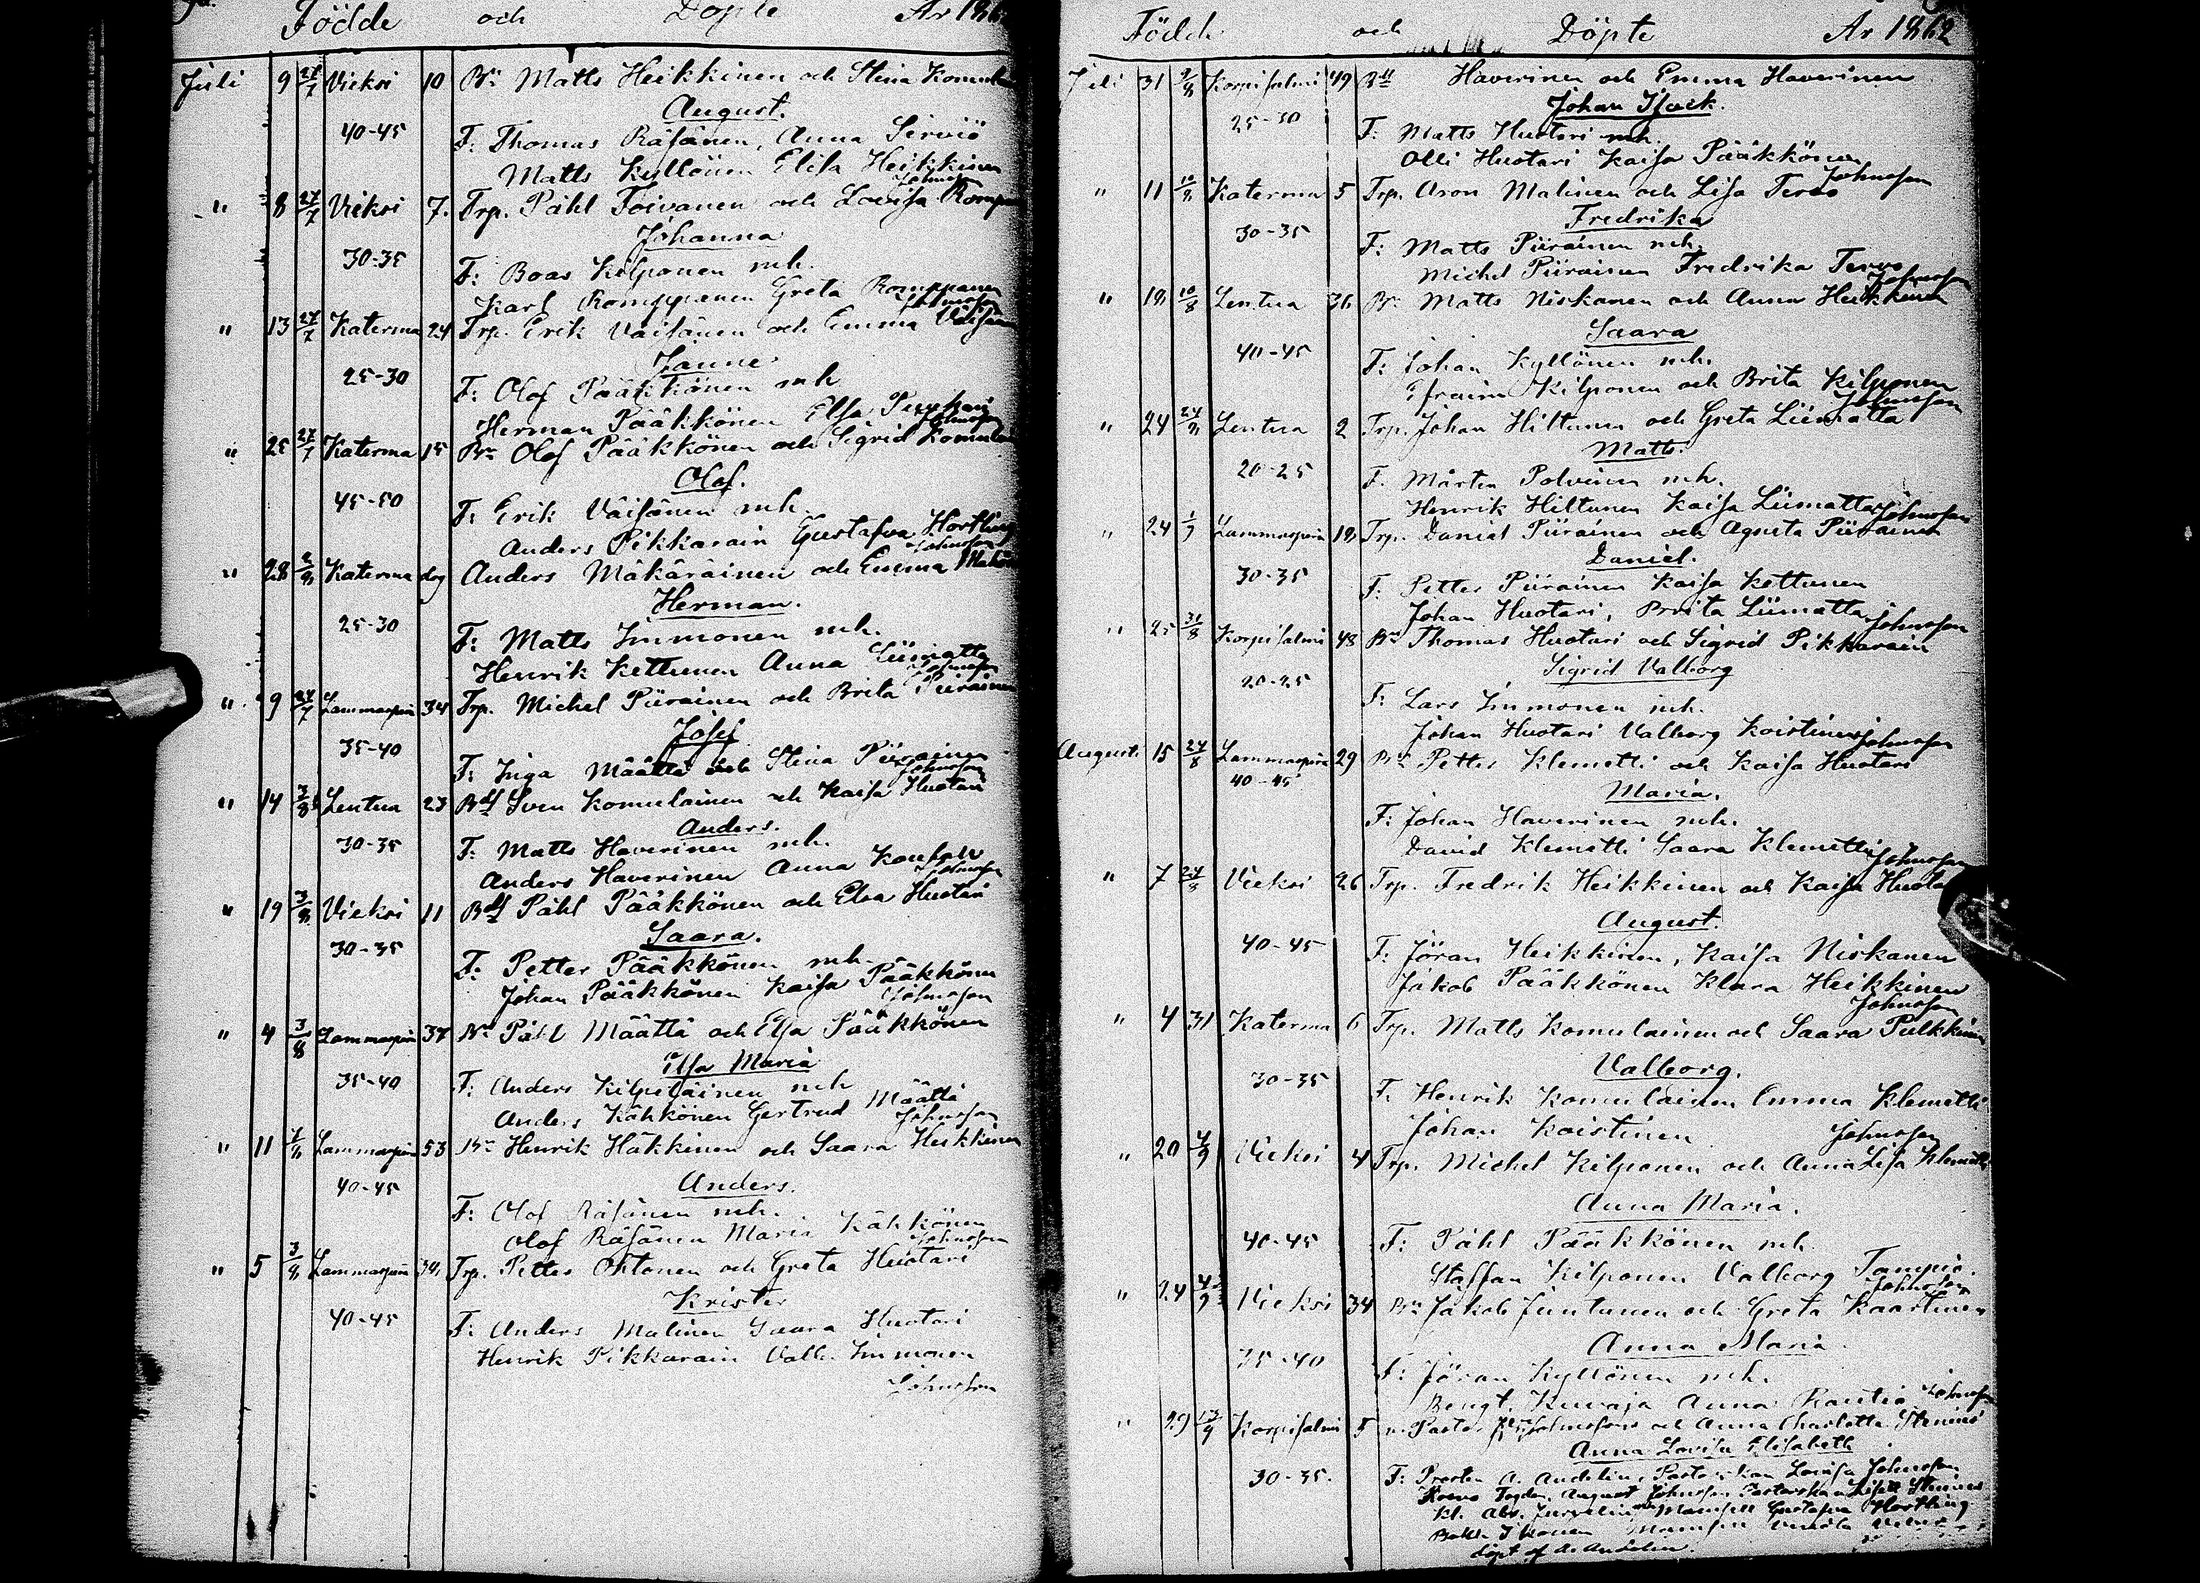 Födde och Döpte År 186
Juli 9 27/7 Vieksi 10 Bn Matts Heikkinen och Stina Komulai
August.
40-45 F: Thomas Räsänen, Anna Serviö
Matts Kyllönen Elisa Heikkinen
Johnsson
" 8 27/7 Vieksi 7. Trp. Påhl Toivanen och Lovisa Romp
Johanna
30-35 F: Boas Kilponen mh.
Karl Romppanen Greta Romppanen
Johnsson
" 13 27/7 Katerma 24 Trp. Erik Väisänen och Emma Väisän
Janne
25-30 F: Olof Pääkkönen mh
Herman Pääkkönen Elsa
Johnsson
" 25 27/7 Katerma 15 Bn Olof Pääkkönen och Sigrid Komulai
Olof.
45-50 F: Erik Väisänen mh.
Anders Pikkarain Gustafva Hortling
Johnsson
" 28 2/8 Katerma drg Anders Mäkäräinen och Emma Mähö
Herman.
25-30 F: Matts Immonen mh.
Henrik Kettunen Anna Liimatta
Johnsson
" 9 27/7 Lammasperä 34 Trp. Michel Piirainen och Brita Piirainen
Josef
35-40 F: Inga Määttä och Stina Piirainen
Johnsson
" 14 3/8 Lentua 23 Bdf Sven Komulainen och Kaisa Huotari
Anders.
30-35 F: Matts Haverinen mh.
Anders Haverinen Anna
Johnsson
" 19 3/8 Vieksi 11 Bdf Påhl Pääkkönen och Elsa Huotari
Saara.
30-35 F: Petter Pääkkönen mh.
Johan Pääkkönen Kaisa Pääkkönen
Johnsson
" 4 3/8 Lammasperä 37 Bn Påhl Määttä och Elsa Pääkkönen
Elsa Maria
35-40 F: Anders Kilpeläinen mh
Anders Kähkönen Gertrud Määttä
Johnsson
" 11 Lammasperä 53 Bn Henrik Häkkinen och Saara Heikkinen
Anders.
40-45 F: Olof Räsänen mh.
Olof Räsänen Maria Kähkönen
Johnsson
" 5 3/8 Lammasperä Trp. Petter Ohtonen och Greta Huotari
Krister
40-45 F: Anders Malinen Saara Huotari
Henrik Pikkarain Valb. Immonen
Johnsson
Födde och Döpte År 1862
Juli 31 9/8 Korpisalmi 49 Bn Haverinen och Emma Haverinen
Johan Isack.
25-30 F: Matts Huotari mh.
Olli Huotari Kaisa Pääkkönen
Johnsson
" 11 10/8 Katerma 5 Trp. Aron Malinen och Lisa Tervo
Fredrika
30-35 F: Matts Piirainen mh.
Michel Piirainen Fredrika Tervo
Johnsson
" 18 10/8 Lentua 36 Bn Matts Niskanen och Anna Heikkinen
Saara
40-45 F: Johan Kyllönen mh.
Efraim Kilponen och Brita Kilponen
Johnsson
" 24 24/8 Lentua 2 Trp. Johan Hiltunen och Greta Liimatta
Matts.
20-25 F. Mårten Polvinen mh.
Henrik Hiltunen Kaisa Liimatta Johnsson
" 24 1/9 Lammasperä 18 Trp. Daniel Piirainen och Agneta Piirainen
Daniel.
30-35 F: Petter Piirainen Kaisa Kettunen
Johan Huotari, Brita Liimatta Johnsson
" 25 31/8 Korpisalmi 48 Bn Thomas Huotari och Sigrid Pikkarain
Sigrid Valborg
20-25 F: Lars Immonen mh.
Johan Huotari Valborg Koistinen Johnsson
August. 15 24/8 Lammasperä 29 Bn Petter Klemetti och Kaisa Huotari
40-45
Maria.
F: Johan Haverinen mh.
David Klemetti Saara Klemetti Johnsson
" 7 24/8 Vieksi 26 Trp. Fredrik Heikkinen och Kaisa Huota
August.
40-45 F: Jöran Heikkinen, Kaisa Niskanen
Jakob Pääkkönen Klara Heikkinen
Johnsson
" 4 31 Katerma 6 Trp. Matts Komulainen och Saara Pulkkinen
Valborg.
30-35 F. Henrik Komulainen Emma Klemetti
Johan Koistinen Johnsson
" 20 4/9 Vieksi 4 Trp. Michel Kilponen och Anna Lisa Klemetti
Anna Maria.
40-45 F: Påhl Pääkkönen mh.
Staffan Kilponen Valborg Tampio.
Johnsson
" 24 Vieksi 34 Bn Jakob Juntunen och Greta Kaartinen
Anna Maria.
35-40 F: Jöran Kyllönen mh.
Bengt Kuvaja Anna Rautio Johnsson
" 29 13/9 Korpisalmi 5 Pastor Johnsson och Anna Charlotta Stenius
Anna Lovisa Elisabeth
30-35. F: Prosten A. Andelin, Lovisa Johnsson
August Johnsson Stenius
Gustafva Hortling

döpt af A. Andelin.